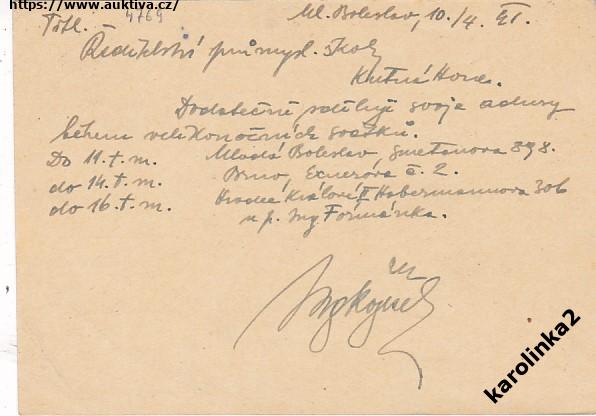 https://www.auktiva.cz/
4769
Ml. Boleslav, 10./4.
Titl.
Ředitelství průmysl. škol
Kutná Hora.
Dodatečně sděluji svoje adresy
během velikonočních svátků.
Do 11. t. m. Mladá Boleslav, Smetanova 898.
do 14. t. m. Brno, Exnerova č. 2.
do 16. t. m. Hradec Králové II Habermannova 306
u p. Ing Formánka.
karolinka2